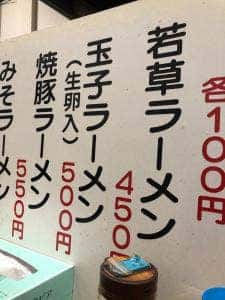 各100円
若草ラーメン
450
玉子ラーメン
(生卵入)
500円
焼豚ラーメン
550円
みそラーメン